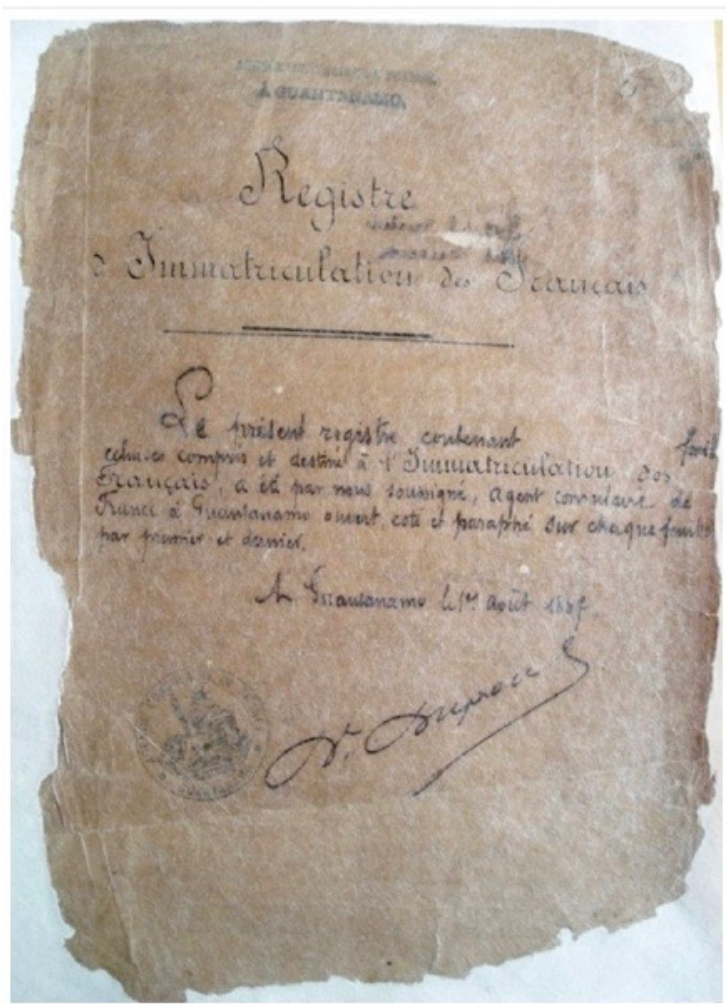 À GUANTANAMO
Registre
d'Immatriculation des Français
Le présent registre contenant feuil
celui-ci compris et destiné à l'Immatriculation des
Français, a été par nous soussigné, agent consulaire de
France à Guantanamo ouvert, coté et paraphé sur chaque feuillet
par premier et dernier.
A Guantanamo le 1er Août